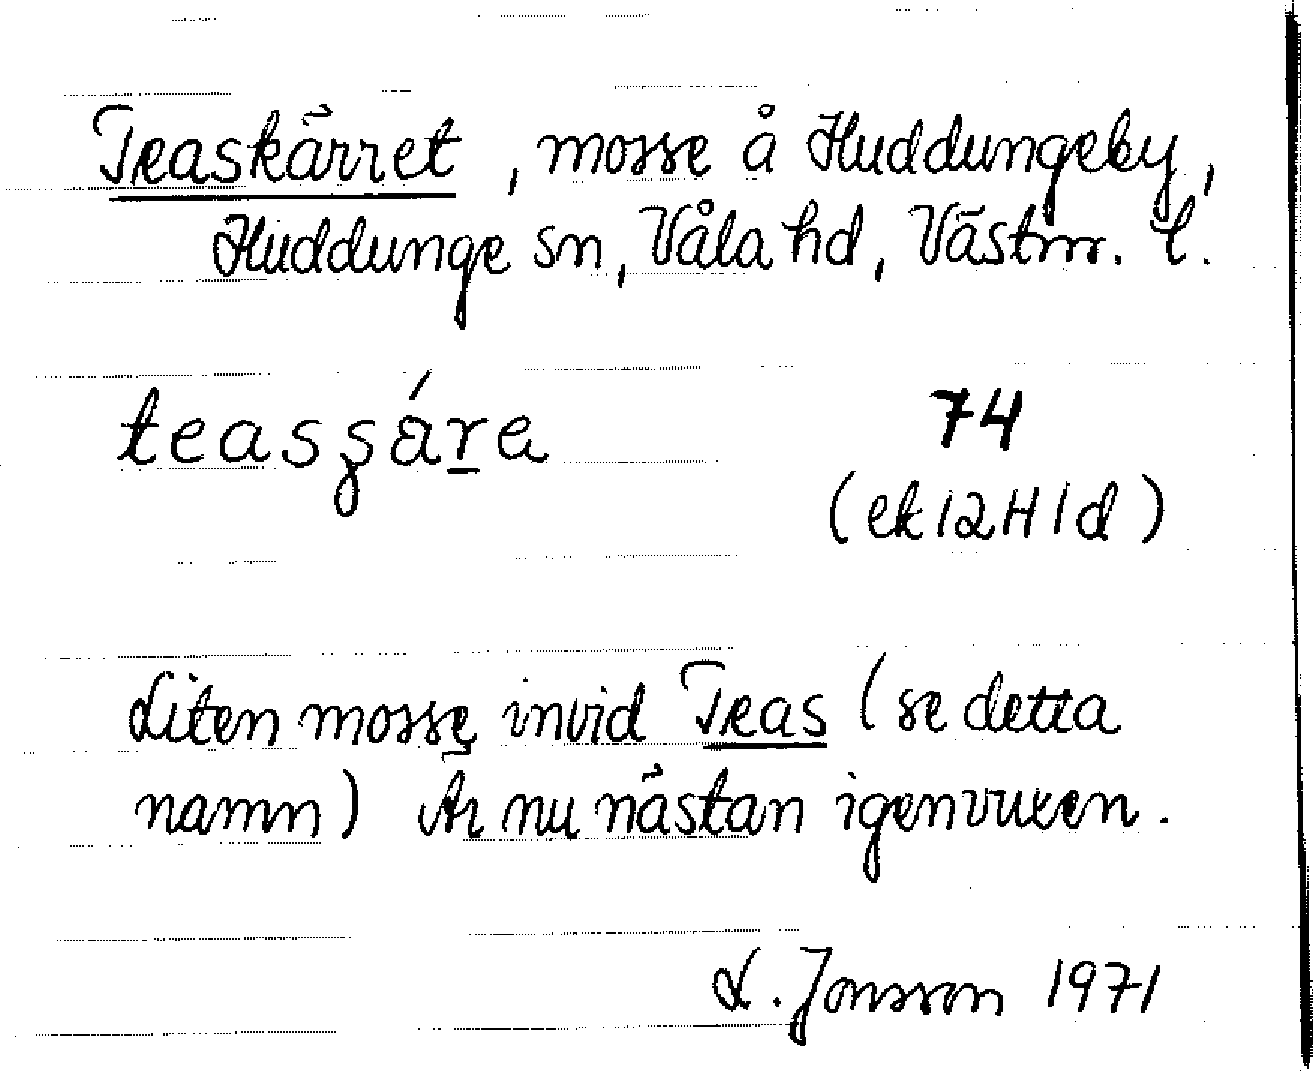 Teaskärret, mosse å Huddungeby,
Huddunge sn, Våla hd, Västm. l.
teasʂáre 74
(ek 12H1d)
Liten mosse invid Teas (se detta
namn) Är nu nästan igenvuxen.
L. Jonsson 1971